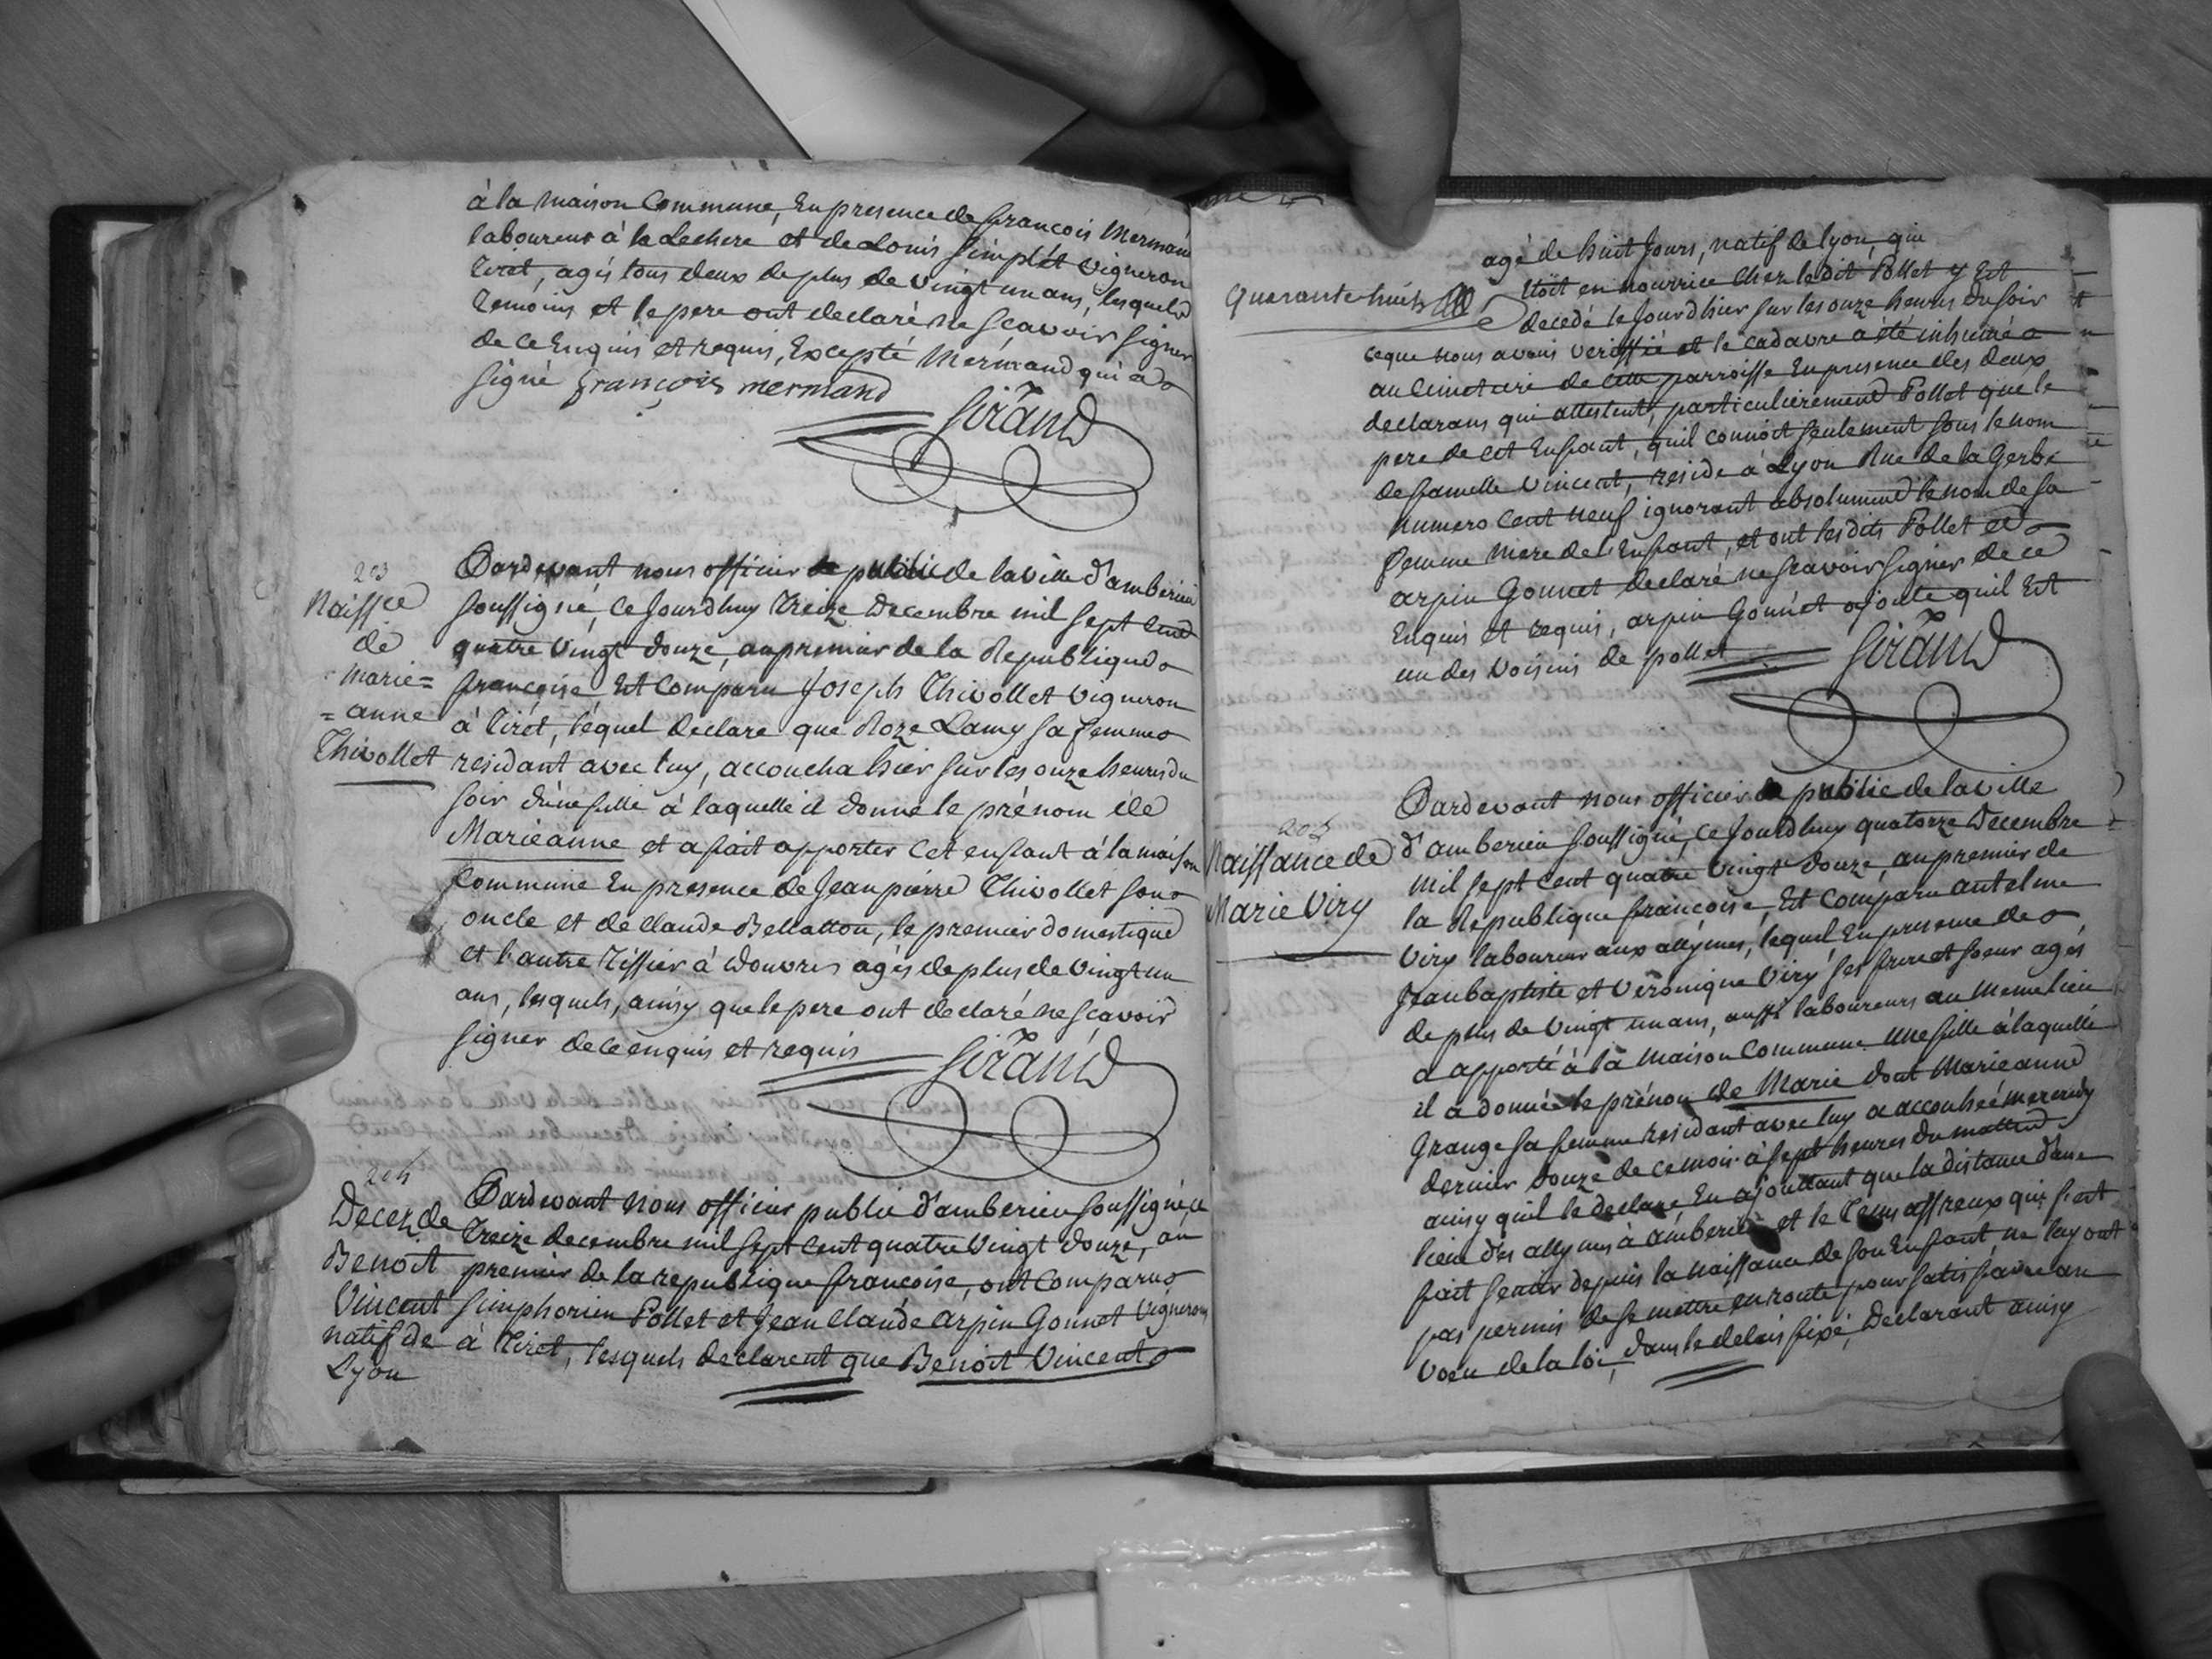 à la maison Commune, En presence de francois Mermand
laboureur à la Lechere et de Louis Simplet vigneron
Tiret, agés tous deux de plus de vingt un ans, lesquels
temoins et le pere ont declaré ne scavoir signer
de ce Enquis et requis, Excepté Mermand qui a
signé françois mermand
Sirand
203
Naissce
de
marie=
=anne
Thivollet
Pardevant nous officier public de la ville d'amberieu
soussigné, ce Jourdhuy treize Decembre mil sept cent
quatre vingt douze, an premier de la Republique
françoise Est Comparu Joseph Thivollet vigneron
à Tiret, lequel declare que Roze Lamy sa femme
residant avec luy, accoucha hier sur les onze heures du
soir d'une fille à laquelle il donne le prénom de
Marieanne et a fait apporter cet enfant à la maison
Commune En presence de Jean pierre Thivollet son
oncle et de Claude Bellatton, le premier domestique
et l'autre Tissier à Douvres agés de plus de vingt un
ans, lesquels, ainsy que le pere ont declaré ne scavoir
signer de ce enquis et requis
Sirand
204
Decez de
Benoit
Vincent
natif de
Lyon
Pardevant nous officier public d'amberieu soussigné, ce
treize decembre mil sept cent quatre vingt douze, an
premier de la republique françoise, ont Comparu
Simphorien Pollet et Jean Claude arpin Gonnet vignerons
à Tiret, lesquels declarent que Benoit Vincent
Quarante huit
agé de huit Jours, natif de lyon, qui
Etoit en nourrice chez le dit Pollet y Est
decedé le Jourd'hier sur les onze heures du soir
ce que nous avons verifié et le cadavre a été inhumé
au Cimetiere de cette parroisse En presence des deux
declarans qui attestent, particulierement Pollet que le
pere de cet Enfant, quil connoit seulement sous le nom
de famille Vincent, reside à Lyon Rue de la Gerbe
numero cent neuf ignorant absolument le nom de sa
femme mere de l'Enfant, et ont les dits Pollet et
arpin Gonnet declaré ne scavoir signer de ce
Enquis et requis, arpin Gonnet ajoute quil Est
un des voisins de pollet
Sirand
205
Naissance de
Marie Viry
Pardevant nous officier public de la ville
d'amberieu soussigné, ce Jourdhuy quatorze Decembre
mil sept cent quatre vingt douze, an premier de
la Republique françoise, Est Comparu antelme
Viry laboureur aux allymes, lequel En presence de
Jean baptiste et Véronique Viry ses frere et soeur agés
de plus de vingt un ans, aussi laboureurs au meme lieu
a apporté à la maison Commune une fille à laquelle
il a donné le prénom de Marie dont Marieanne
Grange sa femme residant avec luy a accouchée mercredy
dernier douze de ce mois à sept heures du matin
ainsy quil le declare En ajouttant que la distance d'une
lieue des allymes à amberieu et le tems affreux qui s'est
fait sentir depuis la naissance de son Enfant ne luy ont
pas permis de se mettre en route pour satisfaire au
voeu de la loi, dans le delais fixé, Declarant ainsy